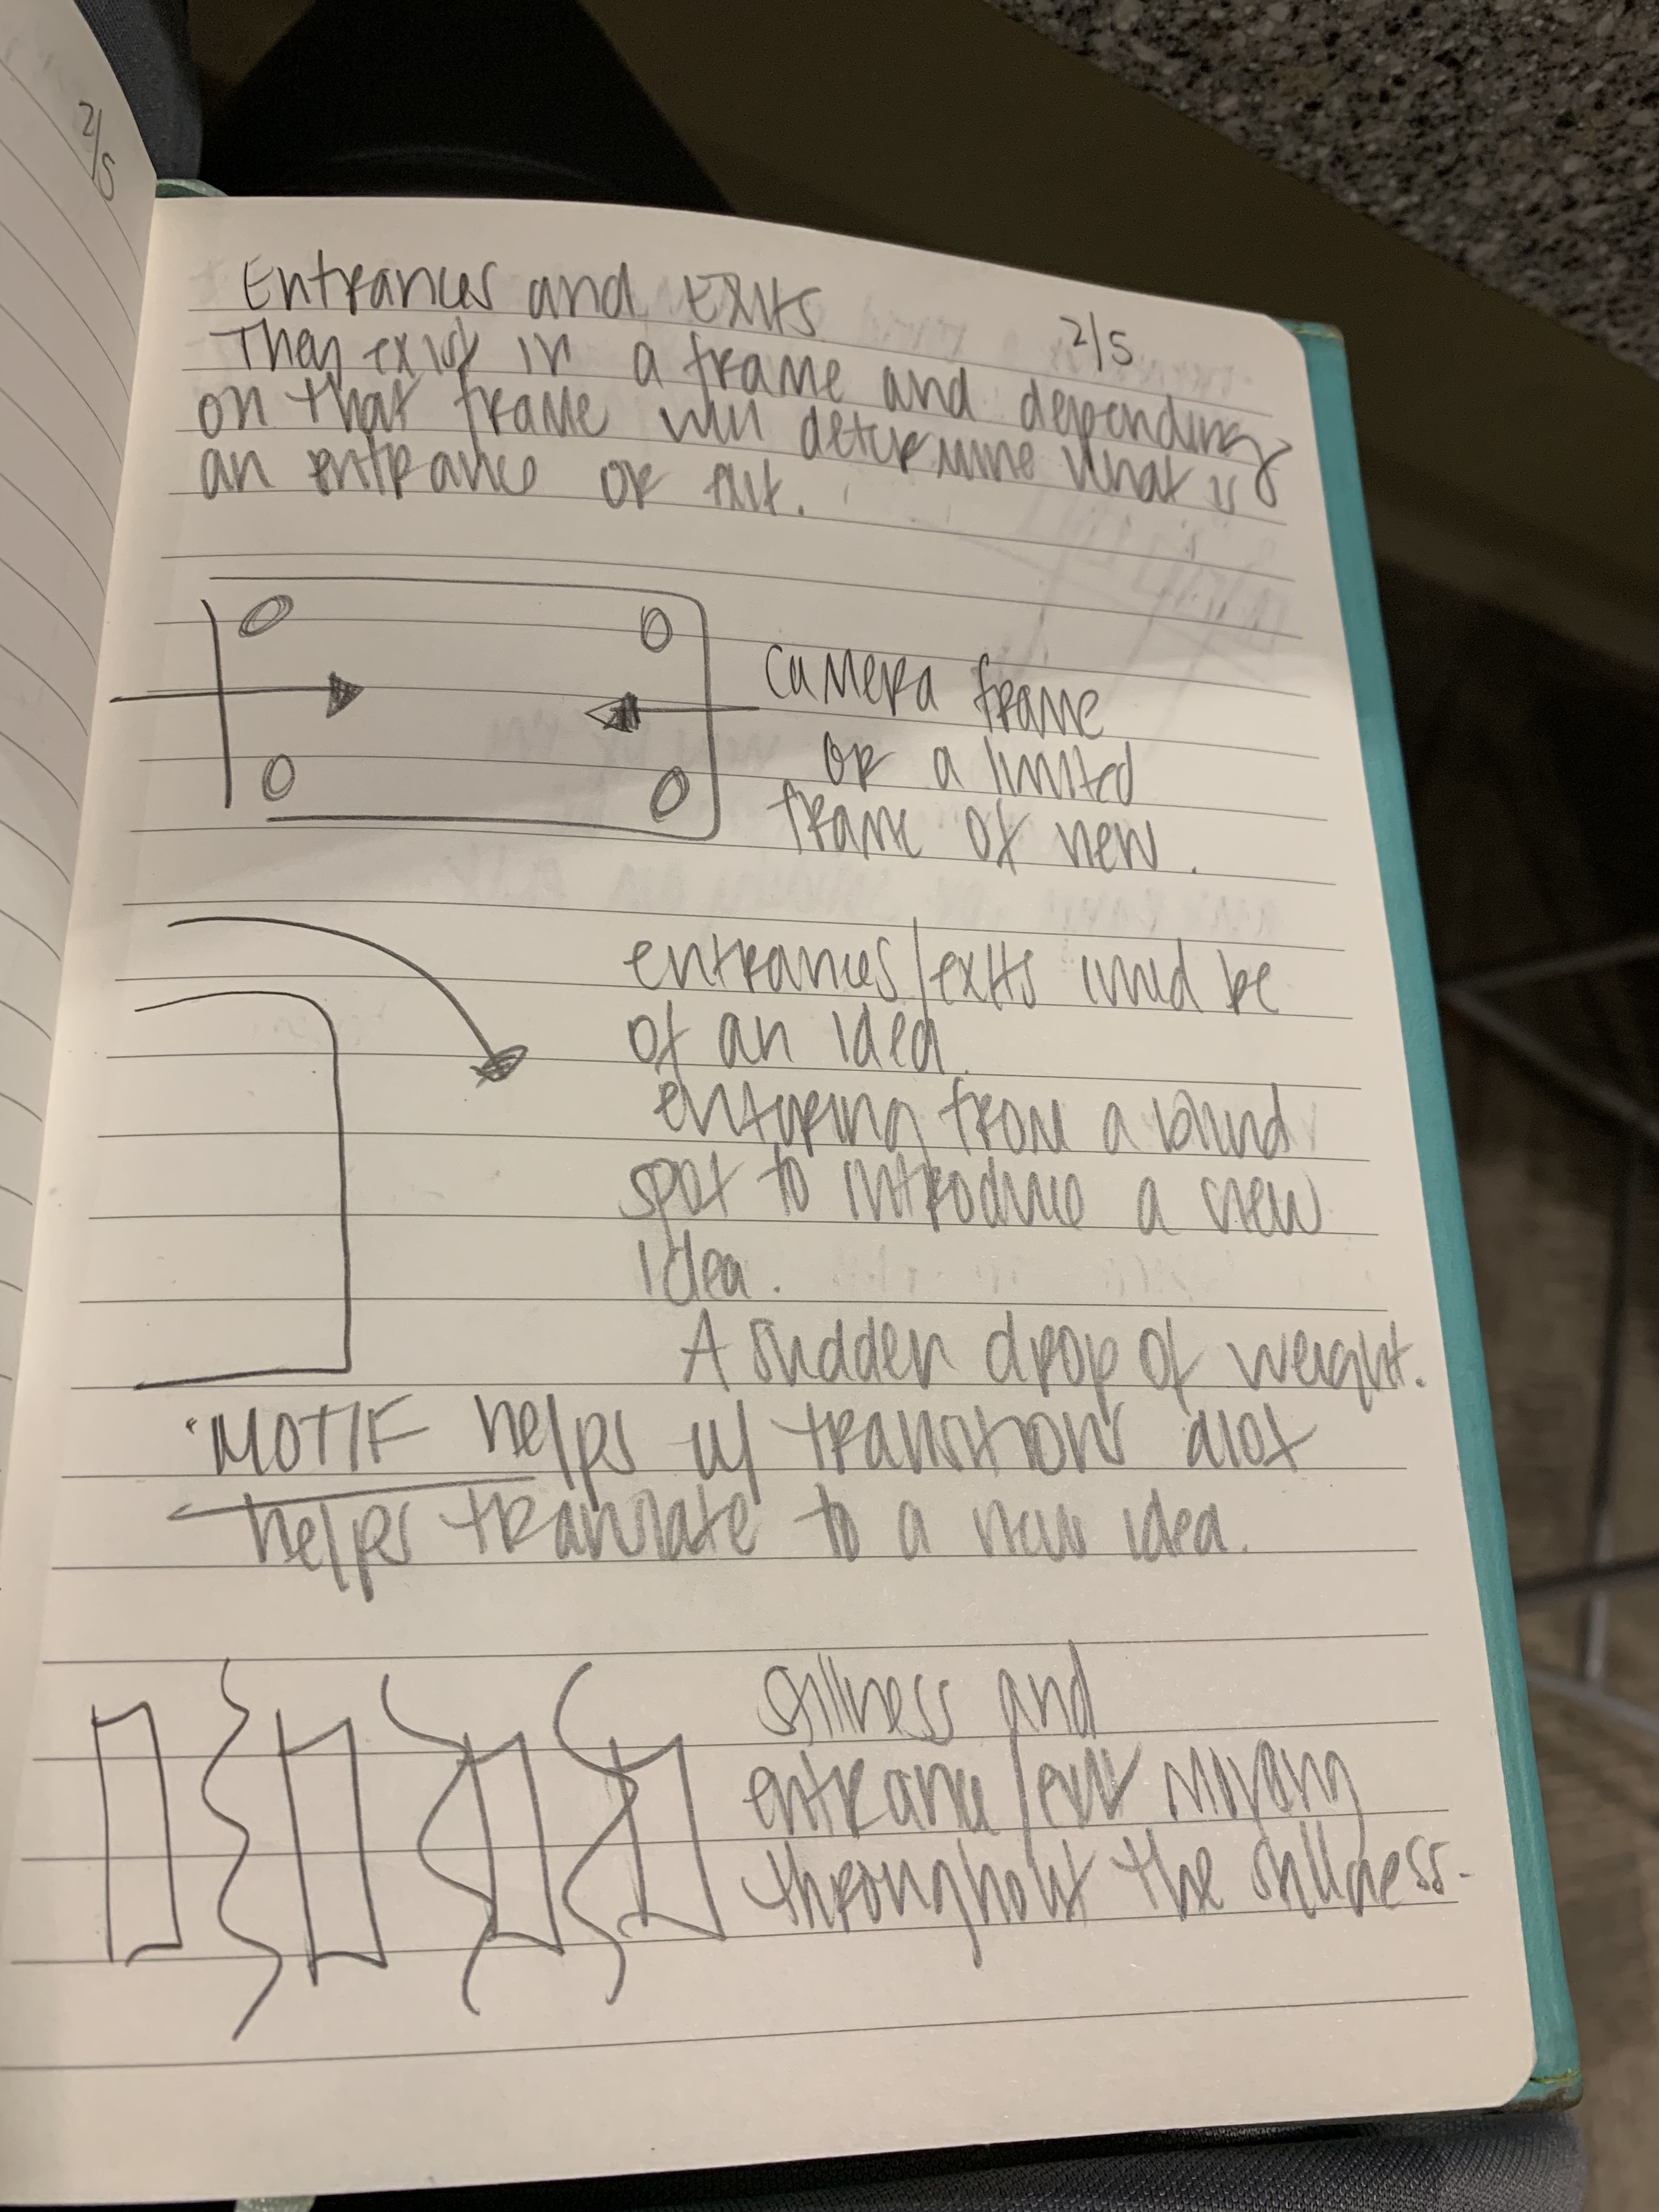 2/5
Entrances and Exits
2/5
They exist in a frame and depending
on that frame will determine what is
an entrance or exit.
camera frame
or a limited
frame of view.
entrances/exits could be
of an idea.
entering from a blind
spot to introduce a new
idea.
A sudden drop of weight.
•MOTIF helps w/ transitions alot
helps translate to a new idea.
stillness and
entrance/exit moving
throughout the stillness.